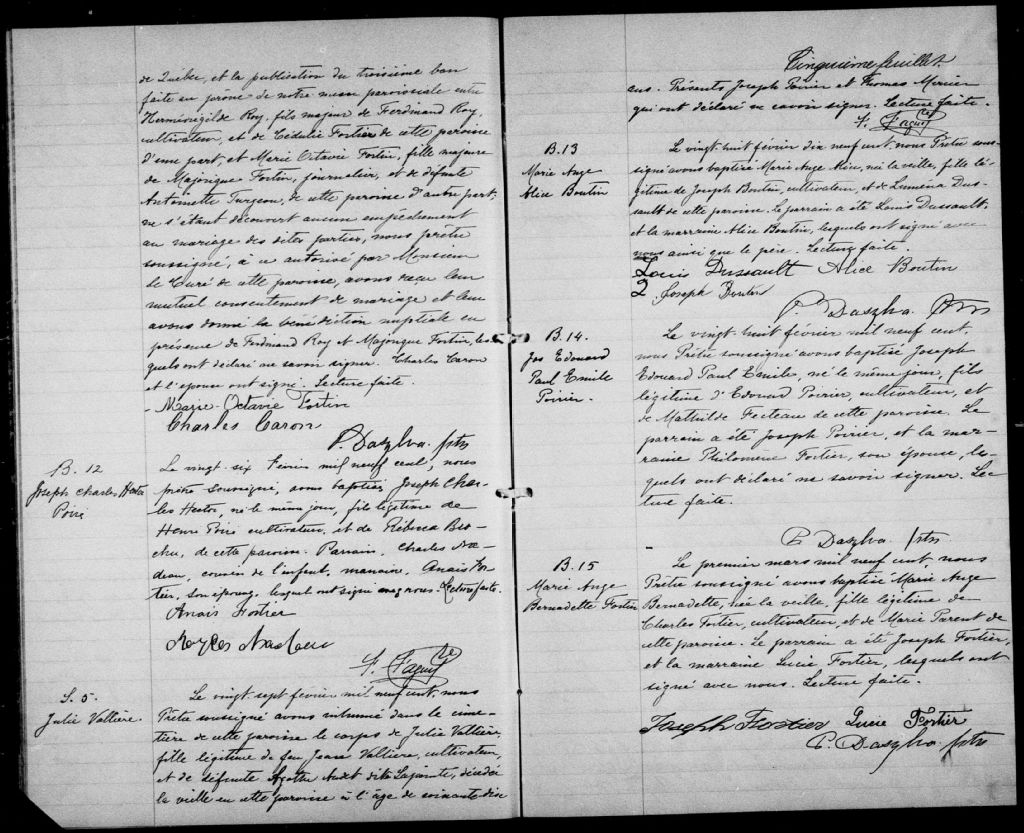 de Québec, et la publication du troisième ban
faite au prône de notre messe paroissiale entre
Herménégilde Roy, fils majeur de Ferdinand Roy,
cultivateur, et de Cédulie Fortier de cette paroisse
d'une part, et Marie Octavie Fortin, fille majeure
de Majorique Fortin, journalier, et de défunte
Antoinette Turgeon, de cette paroisse d'autre part;
ne s'étant découvert aucun empêchement
au mariage des dites parties, nous prêtre
soussigné, à ce autorisé par Monsieur
le Curé de cette paroisse, avons reçu leur
mutuel consentement de mariage et leur
avons donné la bénédiction nuptiale en
présence de Ferdinand Roy et Majorique Fortin, les
quels ont déclaré ne savoir signer. Charles Caron
et l'épouse ont signé. Lecture faite.
Marie-Octavie Fortin
Charles Caron
B. 12
Joseph Charles Hector
Poiré
Le vingt six Février mil neuf cent, nous
prêtre soussigné, avons baptisé Joseph Char-
les Hector, né le même jour, fils légitime de
Henri Poiré cultivateur, et de Rébecca Bro-
chu, de cette paroisse. Parrain, Charles Na-
deau, cousin de l'enfant, marraine, Anaïs For-
tier, son épouse, lesquels ont signé avec nous. Lecture faite.
Anais Fortier
S. 5.
Julie Vallière.
Le vingt sept février mil neuf cent, nous
Prêtre soussigné avons inhumé dans le cime-
tière de cette paroisse le corps de Julie Vallière,
fille légitime de feu Jean Vallière, cultivateur,
et de défunte Agathe Audet dite Lapointe, décédée
la veille en cette paroisse à l'âge de soixante-dix
Cinquième feuillet.
ans. Présents Joseph Poirier et Thomas Mercier
qui ont déclaré ne savoir signer. Lecture faite.
B. 13
Marie Ange
Alice Boutin
Le vingt-huit février dix neuf cent, nous Prêtre sous-
signé avons baptisé Marie Ange Alice, née la veille, fille lé-
gitime de Joseph Boutin, cultivateur, et de Luména Dus-
sault de cette paroisse. Le parrain a été Louis Dussault,
et la marraine Alice Boutin, lesquels ont signé avec
nous ainsi que le père. Lecture faite.
Louis Dussault Alice Boutin
Joseph Boutin
B. 14.
Jos Edouard
Paul Emile
Poirier.
Le vingt huit février mil neuf cent,
nous Prêtre soussigné avons baptisé Joseph
Edouard Paul Emile, né le même jour, fils
légitime d'Edouard Poirier, cultivateur, et
de Mathilde Fecteau de cette paroisse. Le
parrain a été Joseph Poirier, et la mar-
raine Philomène Fortier, son épouse, les-
quels ont déclaré ne savoir signer. Lec
ture faite.
B. 15
Marie Ange
Bernadette Fortier
Le premier mars mil neuf cent, nous
Prêtre soussigné avons baptisé Marie Ange
Bernadette, née la veille, fille légitime de
Charles Fortier, cultivateur, et de Marie Parent de
cette paroisse. Le parrain a été Joseph Fortier,
et la marraine Lucie Fortier, lesquels ont
signé avec nous. Lecture faite.
Joseph Fortier Lucie Fortier